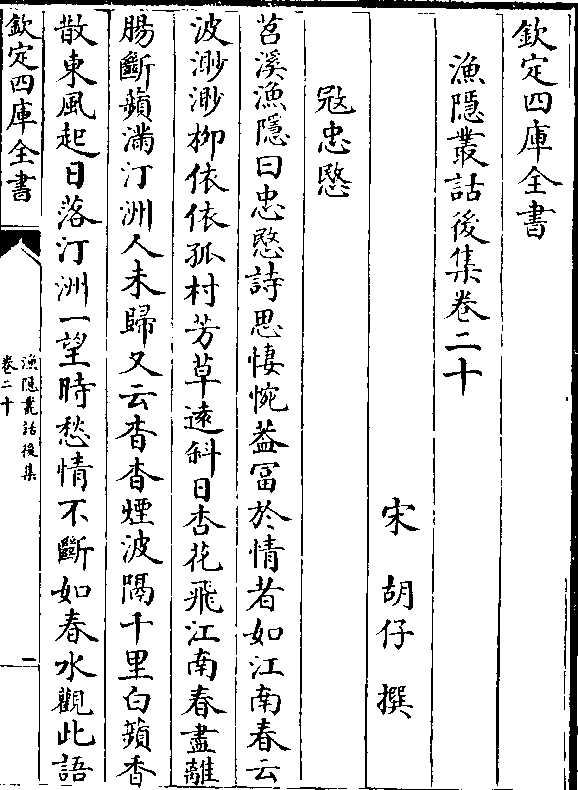 欽定四庫全書
漁隱叢話後集卷二十
宋　胡仔　撰
寇忠愍
苕溪漁隱曰忠愍詩思悽惋葢富於情者如江南春云
波渺渺柳依依孤村芳草遠斜日杏花飛江南春盡離
腸斷蘋滿汀洲人未歸又云杳杳煙波隔千里白蘋香
散東風起日落汀洲一望時愁情不斷如春水觀此語
欽定四庫全書
漁隱叢話後集
卷二十
一